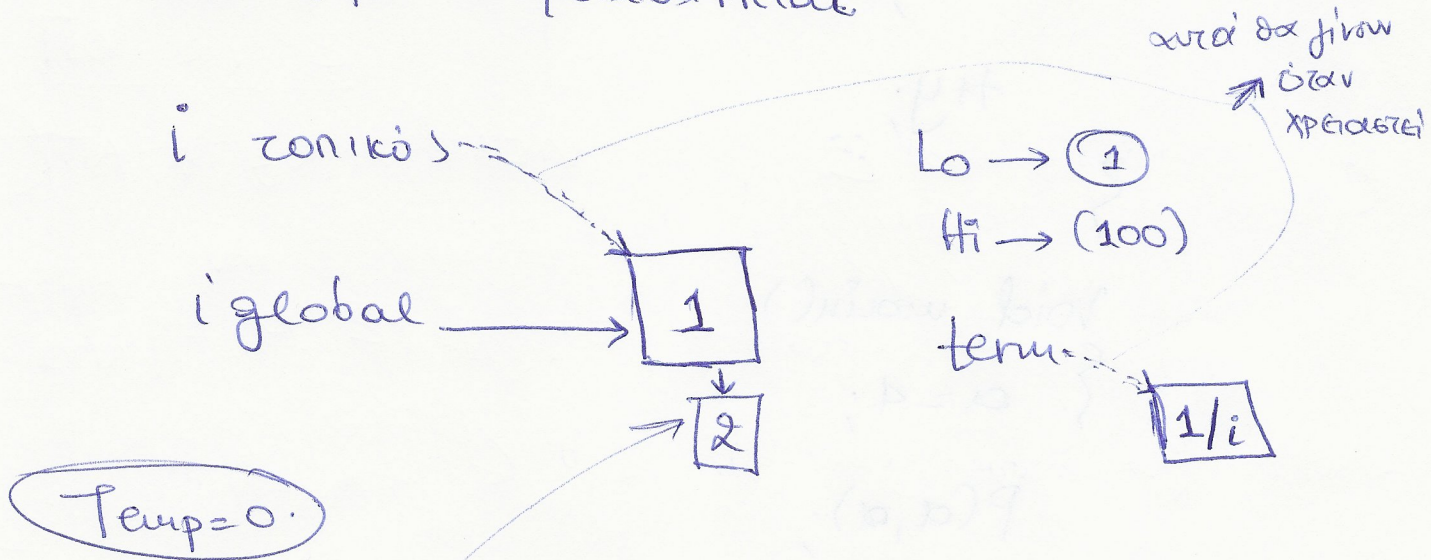 αυτά θα γίνουν
όταν
χρειαστεί
i τοπικός
Lo → 1
Hi → (100)
i global → 1
term
2
1/i
Temp=0.